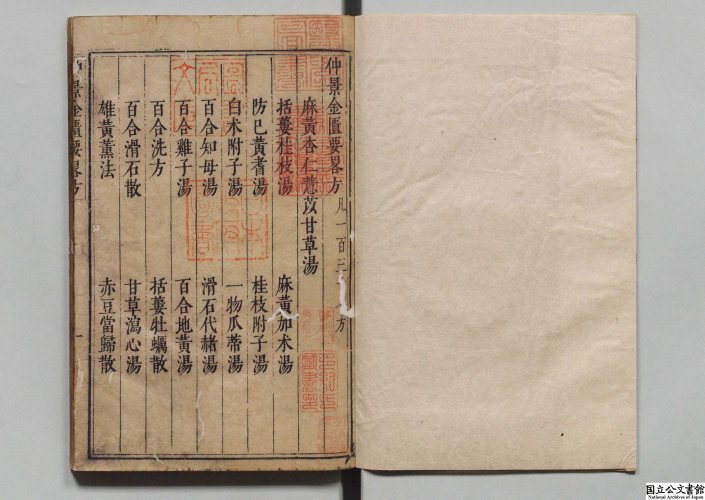 仲景金匱要畧方 凡一百三 方
麻黄杏仁薏苡甘草湯
麻黄加术湯
括蔞桂枝湯
桂枝附子湯
防已黄耆湯
一物瓜蒂湯
白术附子湯
滑石代赭湯
百合知母湯
百合地黄湯
百合雞子湯
括蔞牡蠣散
百合洗方
甘草瀉心湯
百合滑石散
赤豆當歸散
雄黄薰法
景金匱要畧方
一
国立公文書館
National Archives of Japan